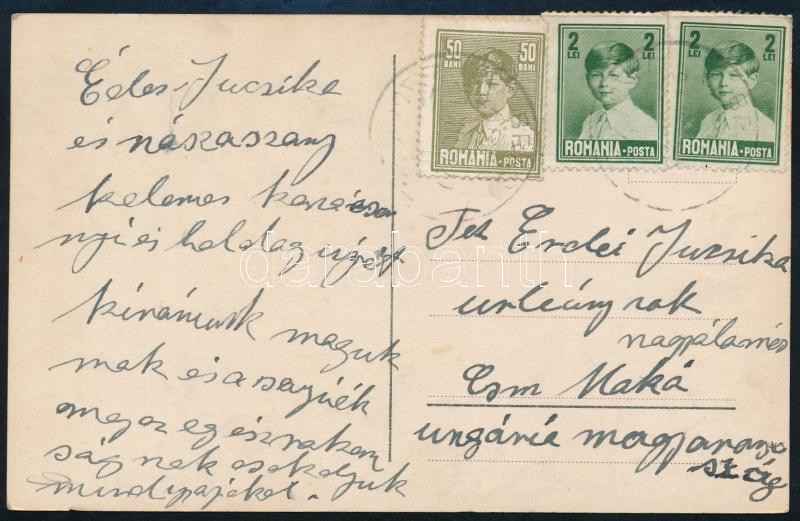 Édes Jucsika
és nászaszany
kelemes karácson
nyi és boldog ujévt
kivánunk maguk
nak és a
meg az egész rokon
ság nak csokoljuk
mindnyájokat.
50 BANI 50 BANI
ROMANIA • POSTA
2 LEI 2 LEI
ROMANIA • POSTA
2 LEI 2 LEI
ROMANIA • POSTA
Erdei Jucsika
urleány nak
Csm Makó
ungária magyarorso
szág
darabanth